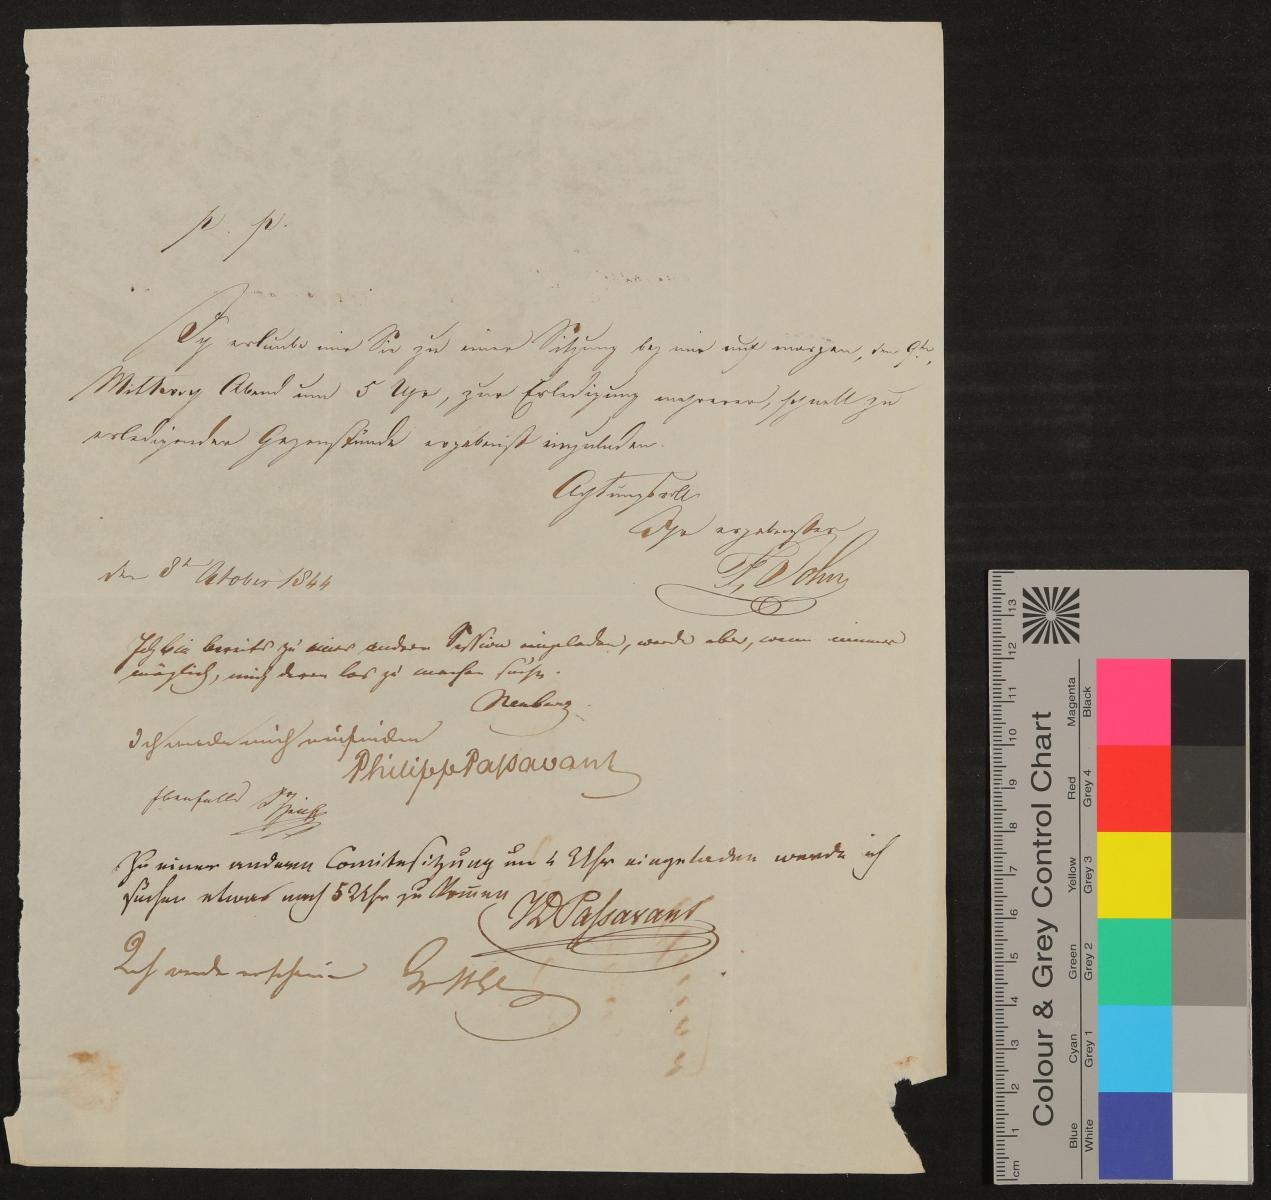 p. p.
Ich erlaube mir Sie zu einer Sitzung bey mir auf morgen, den 9ten,
Mittwoch Abend um 5 Uhr, zur Erledigung mehrerer, schnell zu
erledigender Gegenstände ergebenst einzuladen.
Achtungsvoll
Ihr ergebenster
F. John
den 8t October 1844
Ich bin bereits zu einer andern Session eingeladen, werde aber, wenn immer
möglich, mich deren los zu machen suchen.
Neuburg
Ich werde mich einfinden
Philipp Passavant
Ebenfalls
Zu einer andern Comitesitzung um 4 Uhr eingeladen werde ich
suchen etwas nach 5 Uhr zu kommen
JD Passavant
Ich werde erscheinen
Colour & Grey Control Chart
Blue Cyan Green Yellow Red Magenta
White Grey 1 Grey 2 Grey 3 Grey 4 Black
cm 1 2 3 4 5 6 7 8 9 10 11 12 13